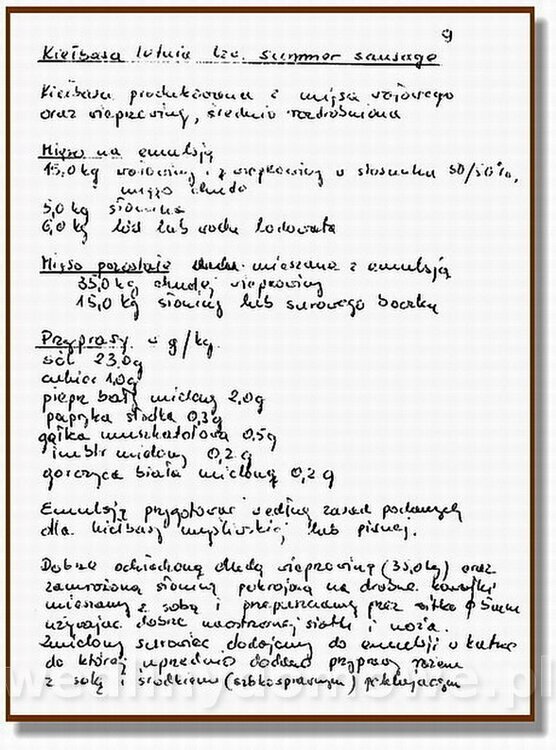 9
Kiełbasa letnia tzw. summer sausage
Kiełbasa produkowana z mięsa wołowego
oraz wieprzowiny, średnio rozdrobniona
Mięso na emulsję
15,0 kg wołowiny i z wieprzowiny w stosunku 50/50%,
mięso chude
5,0 kg słonina
6,0 kg lód lub woda lodowata
Mięso pozostałe mieszane z emulsją
35,0 kg chudej wieprzowiny
15,0 kg słoniny lub surowego boczku
Przyprawy w g/kg
sól 23,0g
cukier 1,0g
pieprz biały mielony 2,0g
papryka słodka 0,3g
gałka muszkatołowa 0,5g
imbir mielony 0,2g
gorczyca biała mielona 0,2g
Emulsję przygotować według zasad podanych
dla kiełbasy myśliwskiej lub piwnej.
Dobrze ochłodzoną chudą wieprzowinę (35,0kg) oraz
zamrożoną słoninę pokrojoną na drobne kawałki
mieszamy z sobą i przepuszczamy przez sitko φ 5mm
używając dobrze naostrzonej siatki i noża.
Zmielony surowiec dodajemy do emulsji w kutrze
do której uprzednio dodano przyprawy razem
z solą i środkiem (szybkosprawnym) peklującym
wedlinydomowe.pl